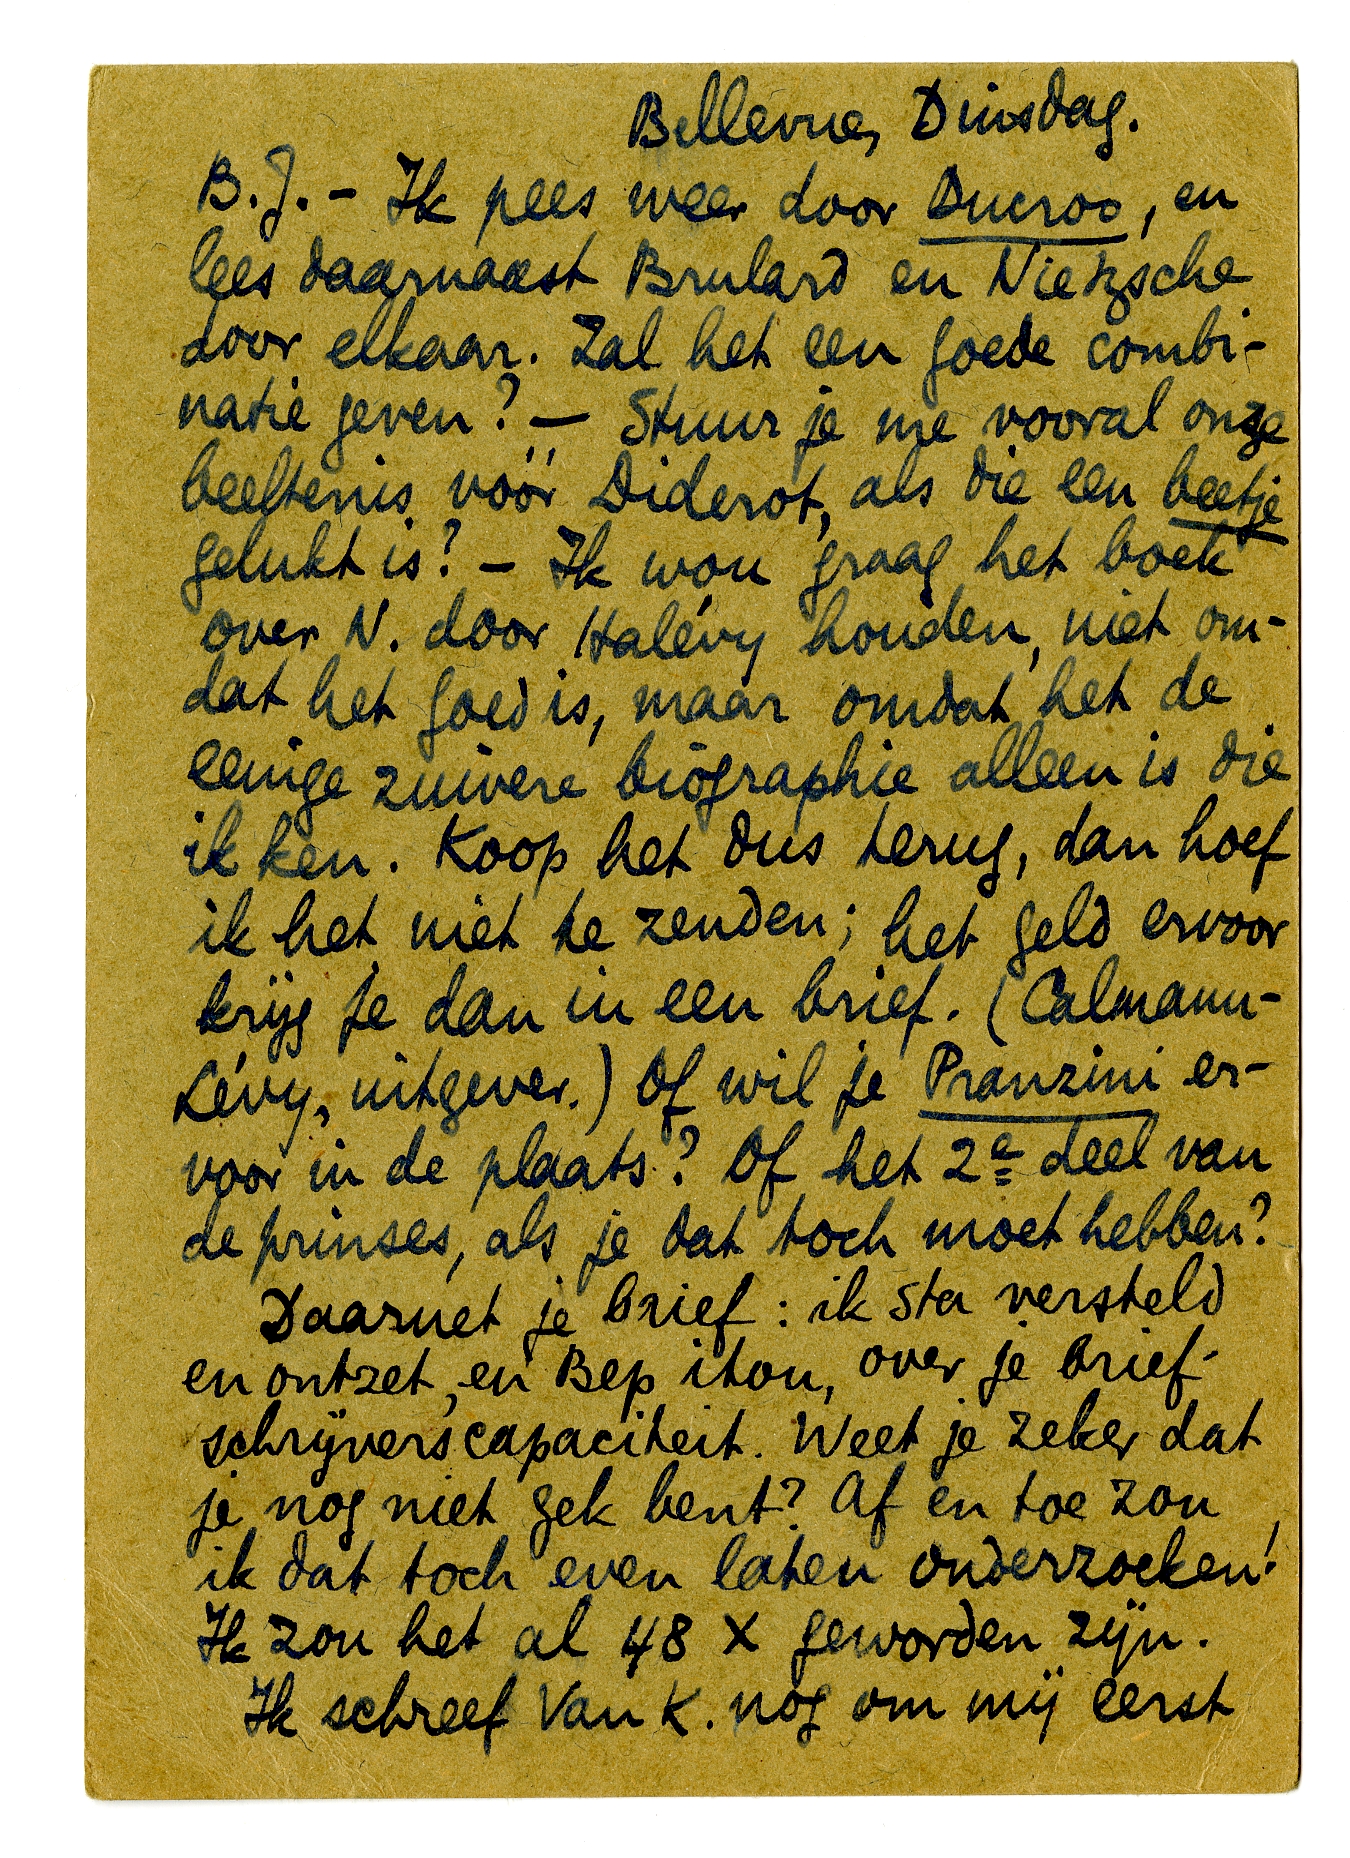 Bellevue, Dinsdag.
B.J. – Ik pees weer door Ducroo, en
lees daarnaast Brulard en Nietzsche
door elkaar. Zal het een goede combi-
natie geven? — Stuur je me vooral onze
beeltenis vóór Diderot, als die een beetje
gelukt is? – Ik wou graag het boek
over N. door Halévy houden, niet om-
dat het goed is, maar omdat het de
eenige zuivere biographie alleen is die
ik ken. Koop het dus terug, dan hoef
ik het niet te zenden; het geld ervoor
krijg je dan in een brief. (Calmann-
Lévy, uitgever.) Of wil je Pranzini er-
voor in de plaats? Of het 2e deel van
de prinses, als je dat toch moet hebben?
Daarnet je brief: ik sta versteld
en ontzet, en Bep itou, over je brief-
schrijverscapaciteit. Weet je zeker dat
je nog niet gek bent? Af en toe zou
ik dat toch even laten onderzoeken!
Ik zou het al 48 X geworden zijn.
Ik schreef Van K. nog om mij eerst